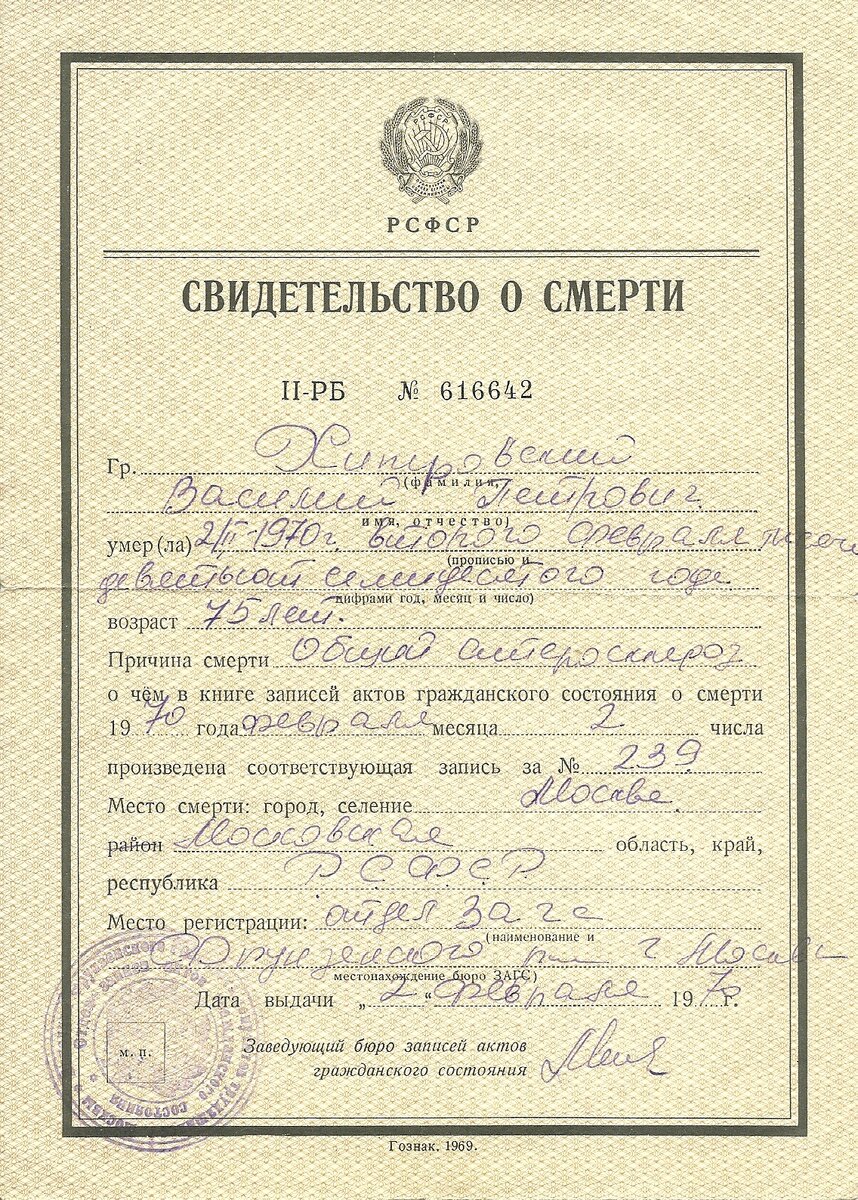 РСФСР
РСФСР
СВИДЕТЕЛЬСТВО О СМЕРТИ
II-РБ № 616642
Гр. Хитровский
(фамилия,
Василий Петрович
имя, отчество)
умер(ла) 2/II-1970г. второго февраля тысяча
(прописью и
девятьсот семидесятого года
цифрами год, месяц и число)
возраст 75 лет.
Причина смерти Общий атеросклероз
о чём в книге записей актов гражданского состояния о смерти
1970 года февраля месяца 2 числа
произведена соответствующая запись за № 239
Место смерти: город, селение Москва.
район Московская область, край,
республика РСФСР
Место регистрации: отдел загс
(наименование и
Фрунзенского г Москвы
местонахождение бюро ЗАГС)
Дата выдачи „2“ февраля 1970г.
м. п.
Заведующий бюро записей актов
гражданского состояния
Гознак. 1969.